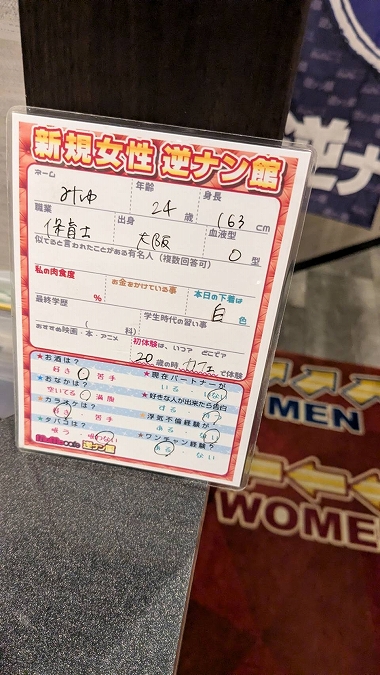 新規女性 逆ナン館
ネーム みゆ 年齢 24 歳 身長 163 cm
職業 保育士 出身 大阪 血液型 O 型
似てると言われたことがある有名人（複数回答可）
私の肉食度 % お金をかけている事 本日の下着は 白 色
最終学歴 ( 科) 学生時代の習い事
おすすめ映画・本・アニメ 初体験は、いつ？ どこで？
20 歳の時 で体験
★お酒は？ ★現在パートナーが
好き 苦手 いる ・ いない
★おなかは？ ★好きな人が出来たら告白
空いてる 満腹 する
★カラオケは？ ★浮気不倫経験が
好き ・ 苦手 ある ・ ない
★タバコは？ ★ワンチャン経験？
吸う 吸わない ある ・ ない
逆ナン館
逆ナ
MEN
WOME